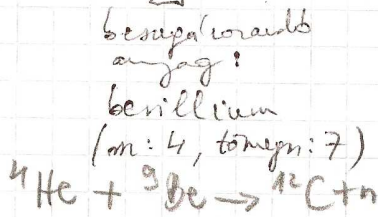 besugárorandó
anyag:
berillium
(m: 4, tömegn: 7)
⁴He + ⁹Be → ¹²C + n